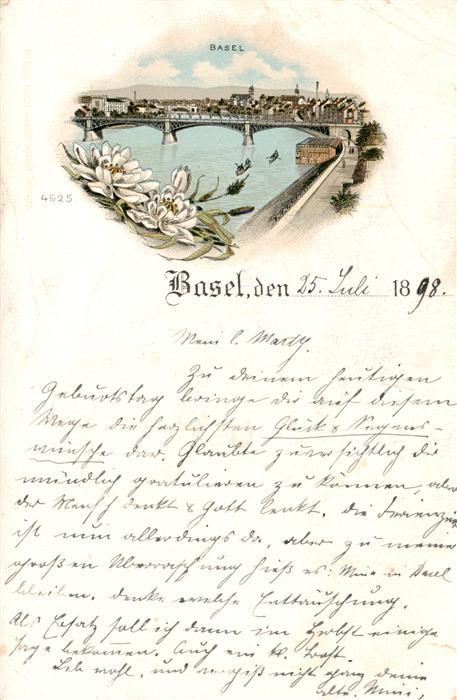 BASEL
4925
Basel, den 25. Juli 1898.
Mein l. Marty.
Zu deinem heutigen
Geburtstag bringe dir auf diesem
Wege die herzlichsten Glück & Segens-
wünsche dar. Glaubte zuversichtlich dir
mündlich gratulieren zu können, aber
der Mensch denkt & Gott lenkt. Die Ferienzeit
ist nun allerdings da, aber zu meiner
großen Überraschung hieß es: Mimi in Basel
bleiben. Denke welche Enttäuschung.
Als Ersatz soll ich dann im Herbst einige
Tage bekommen. Auch ein
Leb wohl, und vergiß nicht ganz deine
Mimi.